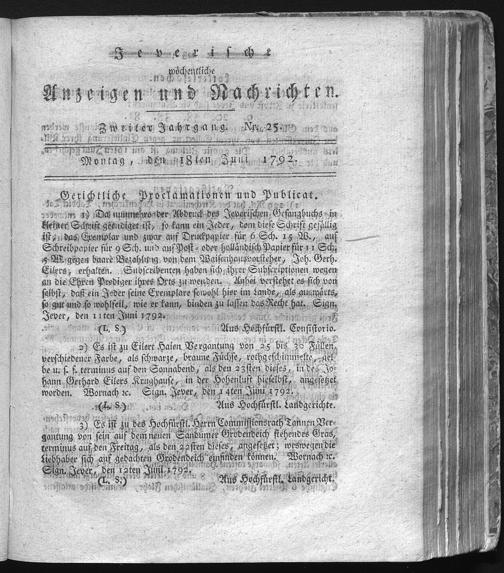 Jeverische
wöchentliche
Anzeigen und Nachrichten.
Zweiter Jahrgang. Nr. 25.
Montag, den 18ten Juni 1792.
Gerichtliche Proclamationen und Publicat.
1) Da nunmehro der Abdruck des Jeverischen Gesangbuchs in
kleiner Schrift geendiget ist, so kann ein Jeder, dem diese Schrift gefällig
ist, das Exemplar und zwar auf Druckpapier für 6 Sch. 15 W., auf
Schreibpapier für 9 Sch. und auf Post- oder holländisch Papier für 11 Sch.
5 W. gegen baare Bezahlung von dem Waisenhausvorsteher, Joh. Gerh.
Eilers, erhalten. Subscribenten haben sich ihrer Subscriptionen wegen
an die Ehren Prediger ihres Orts zu wenden. Anbei verstehet es sich von
selbst, daß ein Jeder seine Exemplare sowohl hier im Lande, als auswärts,
so gut und so wohlfeil, wie er kann, binden zu lassen das Recht hat. Sign.
Jever, den 11ten Juni 1792.
(L. S.) Aus Hochfürstl. Consistorio.
2) Es ist zu Eilert Haien Vergantung von 25 bis 30 Füllen,
verschiedener Farbe, als schwarze, braune Füchse, rothgeschimmelte, gel-
be u. s. f. terminus auf den Sonnabend, als den 23sten dieses, in des Jo-
hann Gerhard Eilers Krughause, in der Hohenluft hieselbst, angesetzet
worden. Wornach ꝛc. Sign. Jever, den 14ten Juni 1792.
(L. S.) Aus Hochfürstl. Landgerichte.
3) Es ist zu des Hochfürstl. Herrn Commissionsrath Tannen Ver-
gantung von sein auf dem neuen Sandumer Grodendeich stehendes Gras,
terminus auf den Freitag, als den 22sten dieses, angesetzet; weswegen der
Liebhaber sich auf gedachten Grodendeich einfinden können. Wornach ꝛc.
Sign. Jever, den 12ten Juni 1792.
(L. S.) Aus Hochfürstl. Landgericht.